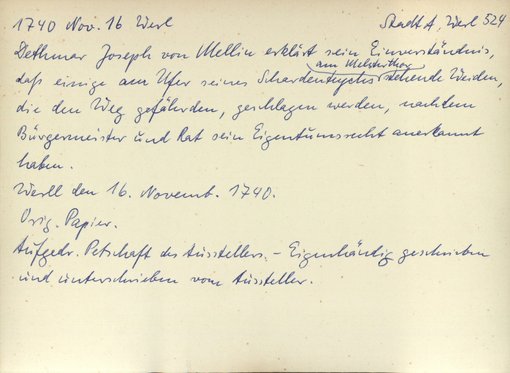 1740 Nov. 16 Werl Stadt A. Werl 524
Dethmar Joseph von Mellin erklärt sein Einverständnis,
am Melsterthor
daß einige am Ufer seines Schardenteychs stehende Weiden,
die den Weg gefährden, geschlagen werden, nachdem
Bürgermeister und Rat sein Eigentumsrecht anerkannt
haben.
Werll den 16. Novemb. 1740.
Orig. Papier.
Aufgedr. Petschaft des Ausstellers. - Eigenhändig geschrieben
und unterschrieben vom Aussteller.